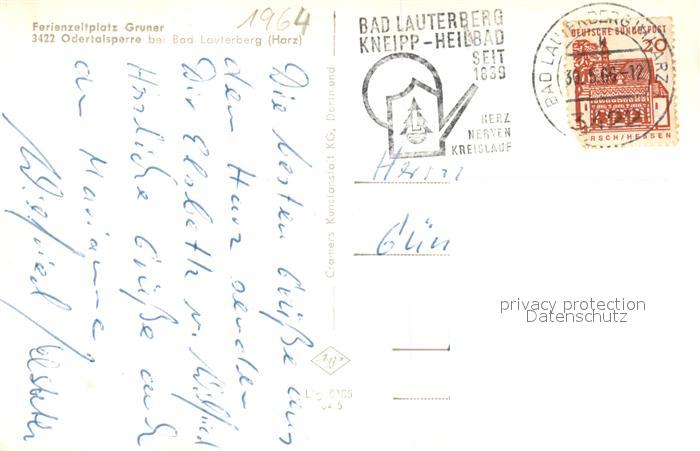 1964
Ferienzeltplatz Gruner
3422 Odertalsperre bei Bad Lauterberg (Harz)
Die besten Grüße aus
dem Harz senden
Dir Elsbeth u. Wilfried
Herzliche Grüße auch
an Marianne
Wilfried Elsbeth
Cramers Kunstanstalt KG, Dortmund
BAD LAUTERBERG
KNEIPP-HEILBAD
SEIT
1839
HERZ
NERVEN
KREISLAUF
BAD LAUTERBERG HARZ
30.5.66-12
3422
DEUTSCHE BUNDESPOST
20
RSCH/HESSEN
Herrn
Gün
privacy protection
Datenschutz